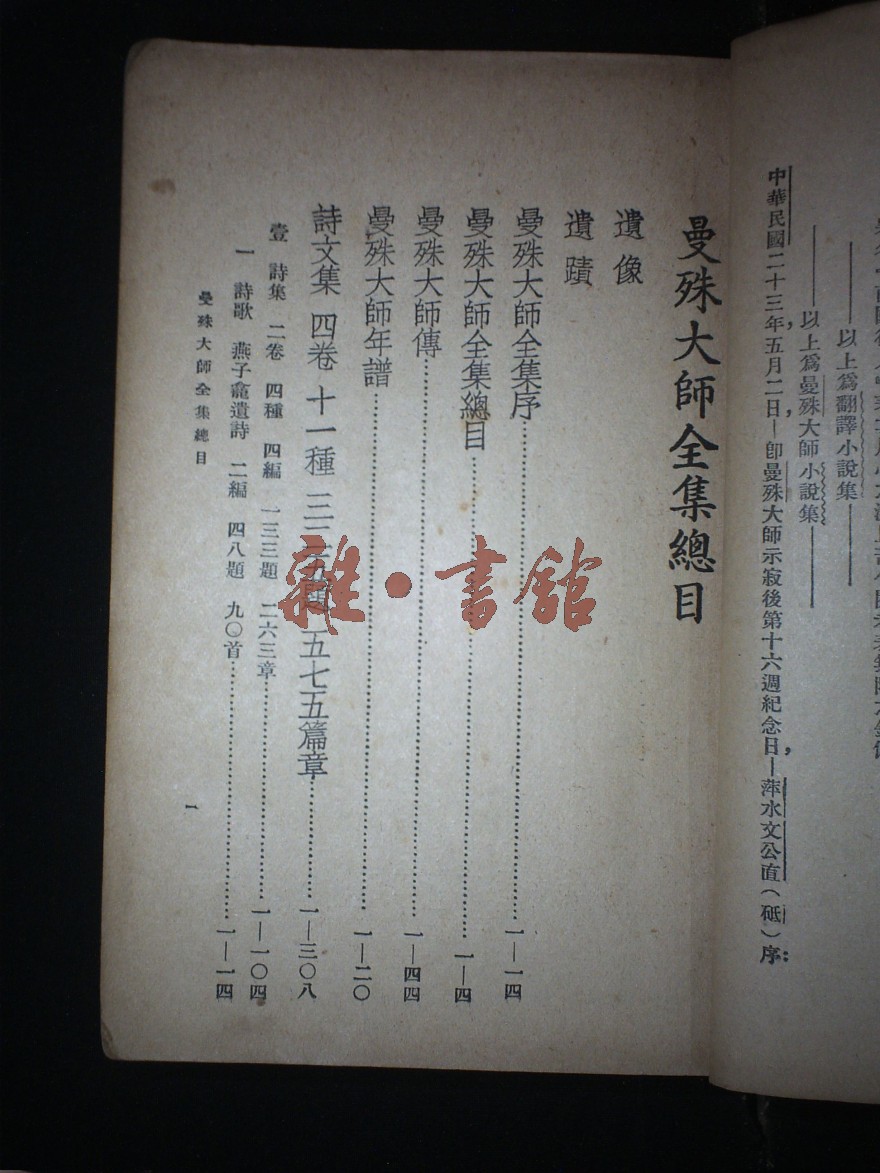 以上爲翻譯小說集
以上爲曼殊大師小說集
中華民國二十三年，五月二日，即曼殊大師示寂後第十六週紀念日，萍水文公直（砥）序：
曼殊大師全集總目
遺像
遺蹟
曼殊大師全集序 一—一四
曼殊大師全集總目 一—四
曼殊大師傳 一—四四
曼殊大師年譜 一—二〇
詩文集 四卷 十一種 五七五篇章 一—三〇八
壹 詩集 二卷 四種 四編 一三三題 二六三章 一—一〇四
一 詩歌 燕子龕遺詩 二編 四八題 九〇首 一—一四
曼殊大師全集總目
一
雜·書館